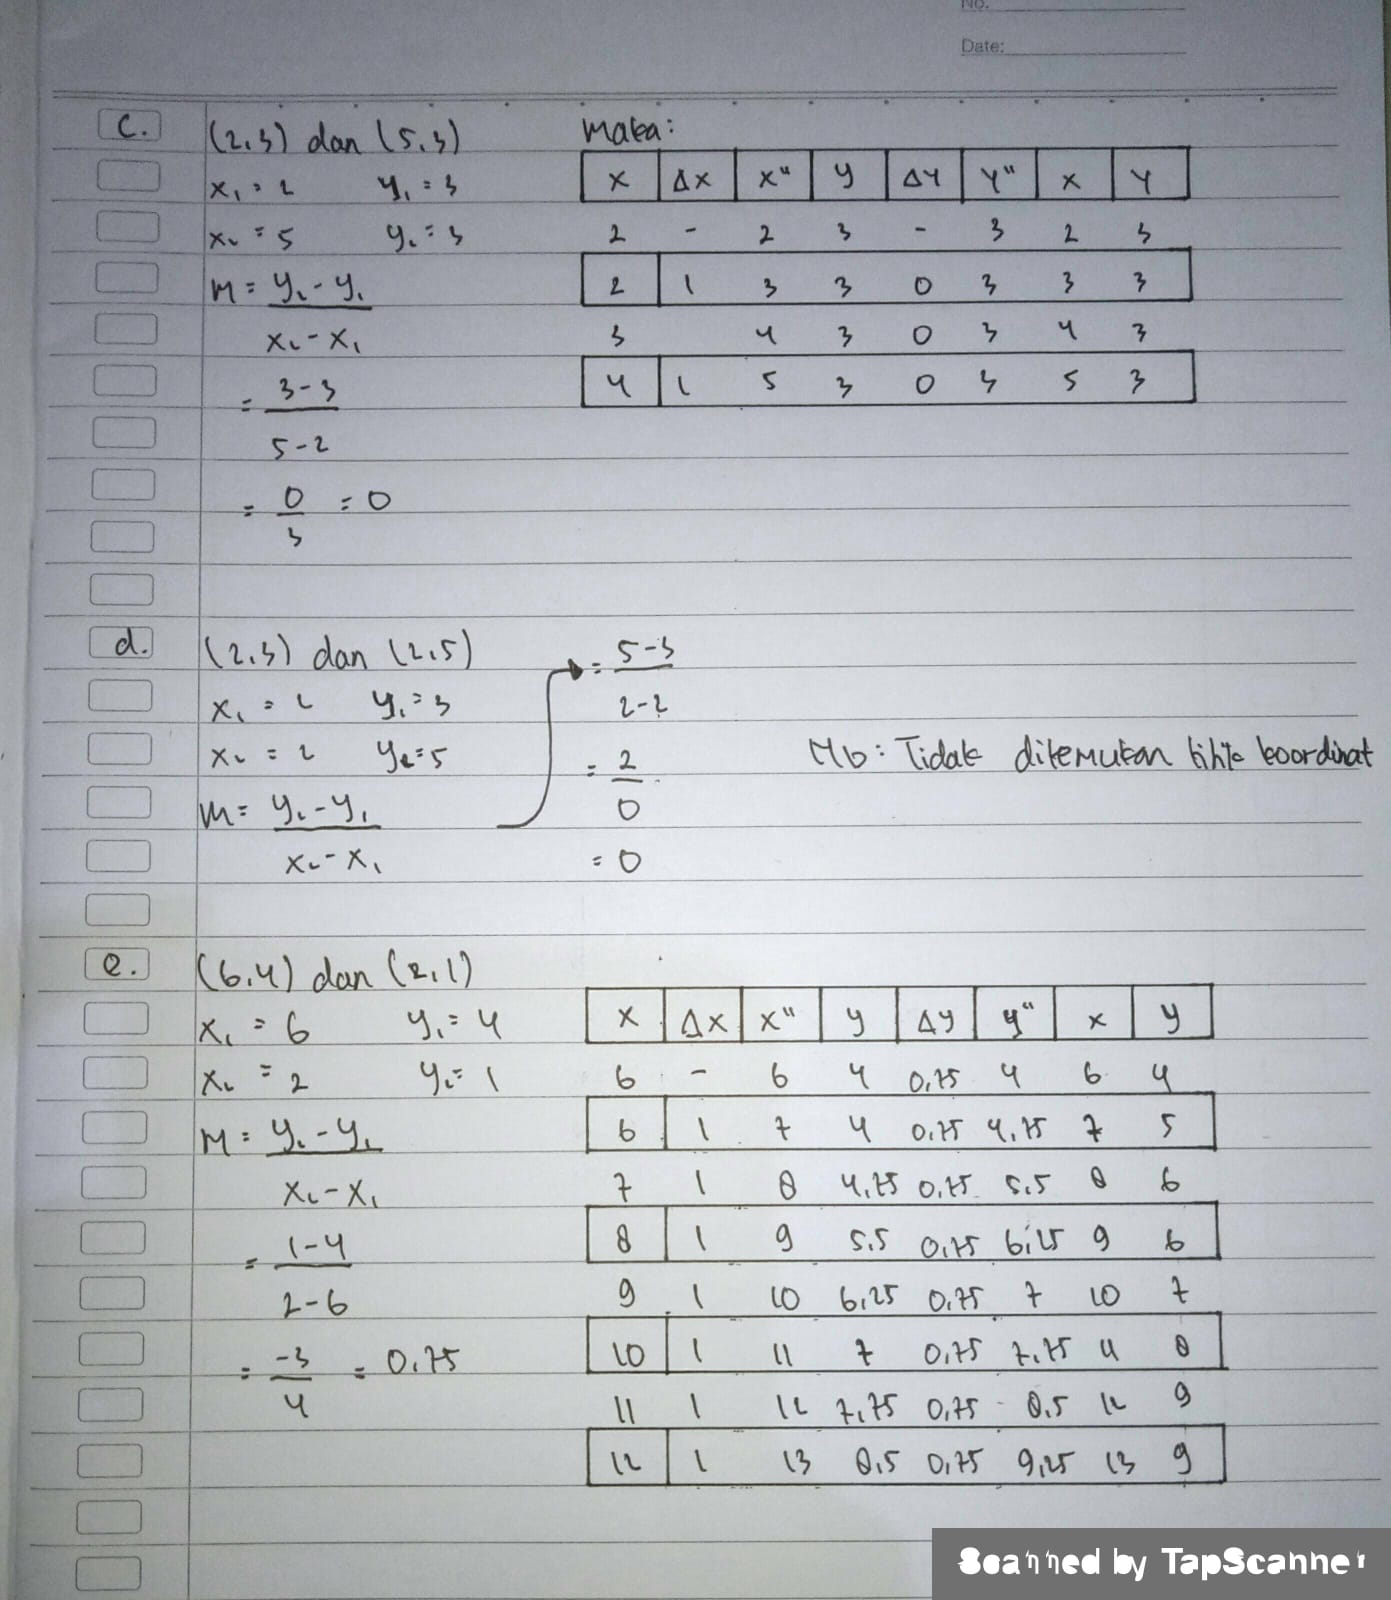 No.
Date:
c. (2,3) dan (5,3)
x₁ = 2 y₁ = 3
x₂ = 5 y₂ = 3
m = y₂ - y₁
x₂ - x₁
= 3 - 3
5 - 2
= 0 = 0
3
maka:
x Δx x" y Δy y" x y
2 - 2 3 - 3 2 3
2 1 3 3 0 3 3 3
3 4 3 0 3 4 3
4 1 5 3 0 3 5 3
d. (2,3) dan (2,5)
x₁ = 2 y₁ = 3
x₂ = 2 y₂ = 5
m = y₂ - y₁
x₂ - x₁
= 5 - 3
2 - 2
= 2
0
= 0
Tidak ditemukan koordinat
e. (6,4) dan (2,1)
x₁ = 6 y₁ = 4
x₂ = 2 y₂ = 1
m = y₂ - y₁
x₂ - x₁
= 1 - 4
2 - 6
= -3 = 0,75
4
x Δx x" y Δy y" x y
6 - 6 4 0,75 4 6 4
6 1 7 4 0,75 4,75 7 5
7 1 8 4,75 0,75 5,5 8 6
8 1 9 5,5 0,75 6,25 9 6
9 1 10 6,25 0,75 7 10 7
10 1 11 7 0,75 7,75 11 8
11 1 12 7,75 0,75 8,5 12 9
12 1 13 8,5 0,75 9,25 13 9
Scanned by TapScanner